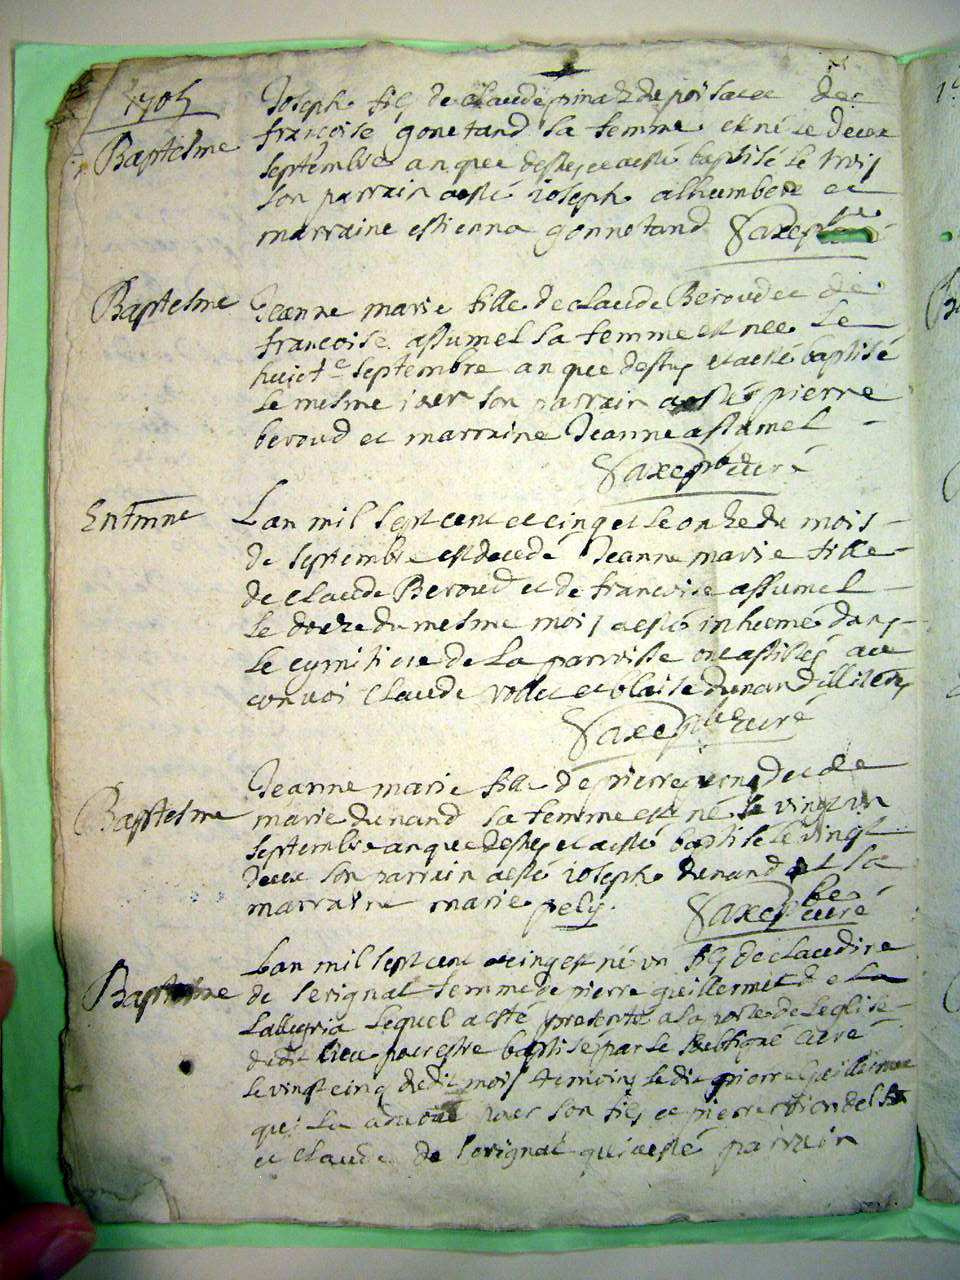 1705
Baptesme
Joseph fils de Claude pina et de
françoise gonetand sa femme est né le deux
septembre an que dessus et a esté baptisé le trois
son parrain a esté joseph alhumbert et
marraine estienna gonnetand Saxe pbre
Baptesme
Jeanne marie fille de claude Beroud et de
françoise assumel sa femme est nee le
huict septembre an que dessus et a esté baptisé
le mesme iour son parrain a esté pierre
beroud et marraine Jeanne assumel
Saxe pbre curé
Lan mil sept cent et cinq et le onze du mois
de septembre est decedé Jeanne marie fille
de claude Beroud et de francoise assumel
le douze du mesme mois a esté inhumé dans
le cymitiere de la parroisse ont assistés au
convoi claude vollet et blaise dunand illiterés
Saxe pbre curé
Baptesme
Jeanne marie fille de pierre et de
marie dunand sa femme est né le vingt un
septembre an que dessus et a esté baptisé le vingt
deux son parrain a esté joseph dunand et sa
marraine marie pely. Saxe pbre curé
Baptesme
Lan mil sept cent et cinq est né un fils de claudine
de lorignal femme de pierre guillermet de la
lequel a esté presenté a la porte de leglise
dudit lieu pour estre baptisé par le soubsigné curé
le vingt cinq dudit mois temoins le dit pierre guillermet
qui la advoué pour son fils et pierre
et claude de lorignal qui a esté parrain